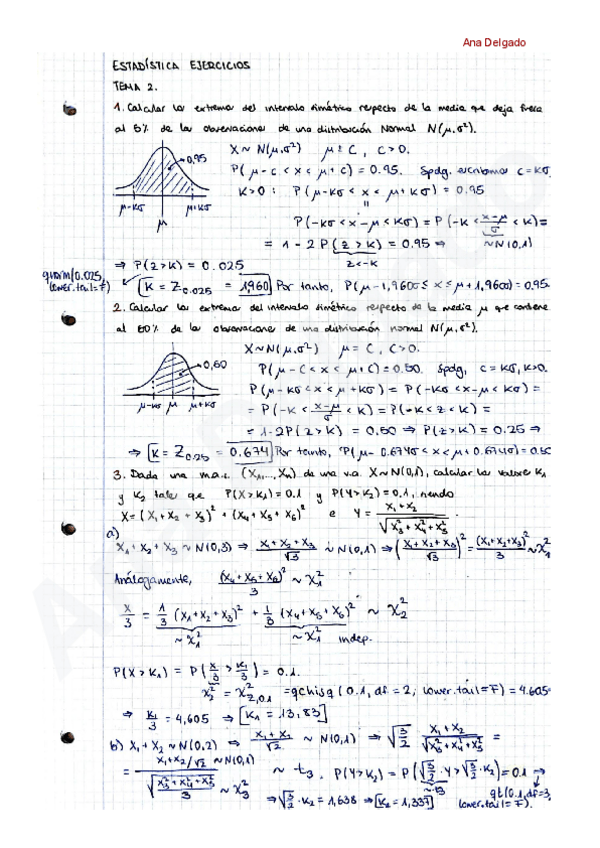 Ana Delgado
ESTADÍSTICA EJERCICIOS
TEMA 2.
1. Calcular los extremos del intervalo simétrico respecto de la media que deja fuera
al 5% de las observaciones de una distribución Normal N(μ,σ²).
0,95
X ~ N(μ,σ²) μ ± C, C>0.
P(μ-c < x < μ+c) = 0.95. Spdg. escribimos c=Kσ
K>0 : P(μ-Kσ < x < μ+Kσ) = 0.95
μ-Kσ μ+Kσ
P(-Kσ < x-μ < Kσ) = P(-K < (x-μ)/σ < K) =
= 1-2P(z>K) = 0.95 ⇒ ~N(0,1)
z<-K
⇒ P(z>K) = 0.025
qnorm(0.025, lower.tail=F)
K = Z0.025 = 1,960 Por tanto, P(μ-1,960σ ≤ x ≤ μ+1,960σ) = 0.95
2. Calcular los extremos del intervalo simétrico respecto de la media μ que contiene
al 50% de las observaciones de una distribución normal N(μ,σ²).
X~N(μ,σ²) μ = C, C>0.
0,50
P(μ-C < x < μ+C) = 0.50. Spdg, c=Kσ, K>0.
P(μ-Kσ < x < μ+Kσ) = P(-Kσ < x-μ < Kσ) =
μ-Kσ μ μ+Kσ
= P(-K < (x-μ)/σ < K) = P(-K < z < K) =
= 1-2P(z>K) = 0.50 ⇒ P(z>K) = 0.25 ⇒
⇒ K = Z0.25 = 0.674 Por tanto, P(μ-0.674σ < x < μ+0.674σ) = 0.50
3. Dada una m.a.s. (X1,...,Xn) de una v.a. X~N(0,1), calcular los valores K1
y K2 tales que P(X>K1)=0.1 y P(Y>K2)=0.1, siendo
X = (X1+X2+X3)² + (X4+X5+X6)² e Y = (X1+X2)/√(X3²+X4²+X5²).
a)
X1+X2+X3 ~ N(0,3) ⇒ (X1+X2+X3)/√3 ~ N(0,1) ⇒ ((X1+X2+X3)/√3)² = (X1+X2+X3)²/3 ~ χ²1
Análogamente, (X4+X5+X6)²/3 ~ χ²1
X/3 = 1/3 (X1+X2+X3)² + 1/3 (X4+X5+X6)² ~ χ²2
~χ²1 ~χ²1 indep.
P(X>K1) = P(X/3 > K1/3) = 0.1.
χ²2 = χ²2,0.1 = qchisq(0.1, df=2, lower.tail=F) = 4.605
⇒ K1/3 = 4,605 ⇒ [K1 = 13,83]
b) X1+X2 ~ N(0,2) ⇒ (X1+X2)/√2 ~ N(0,1) ⇒ √(3/2) (X1+X2)/√(X3²+X4²+X5²) =
= ((X1+X2)/√2 ~ N(0,1))/(√((X3²+X4²+X5²)/3) ~ χ²3) ~ t3, P(Y>K2) = P(√(3/2)·Y > √(3/2)·K2) = 0.1
~t3
⇒ √(3/2)·K2 = 1,638 ⇒ [K2 = 1,337]
qt(0.1, df=3, lower.tail=F).